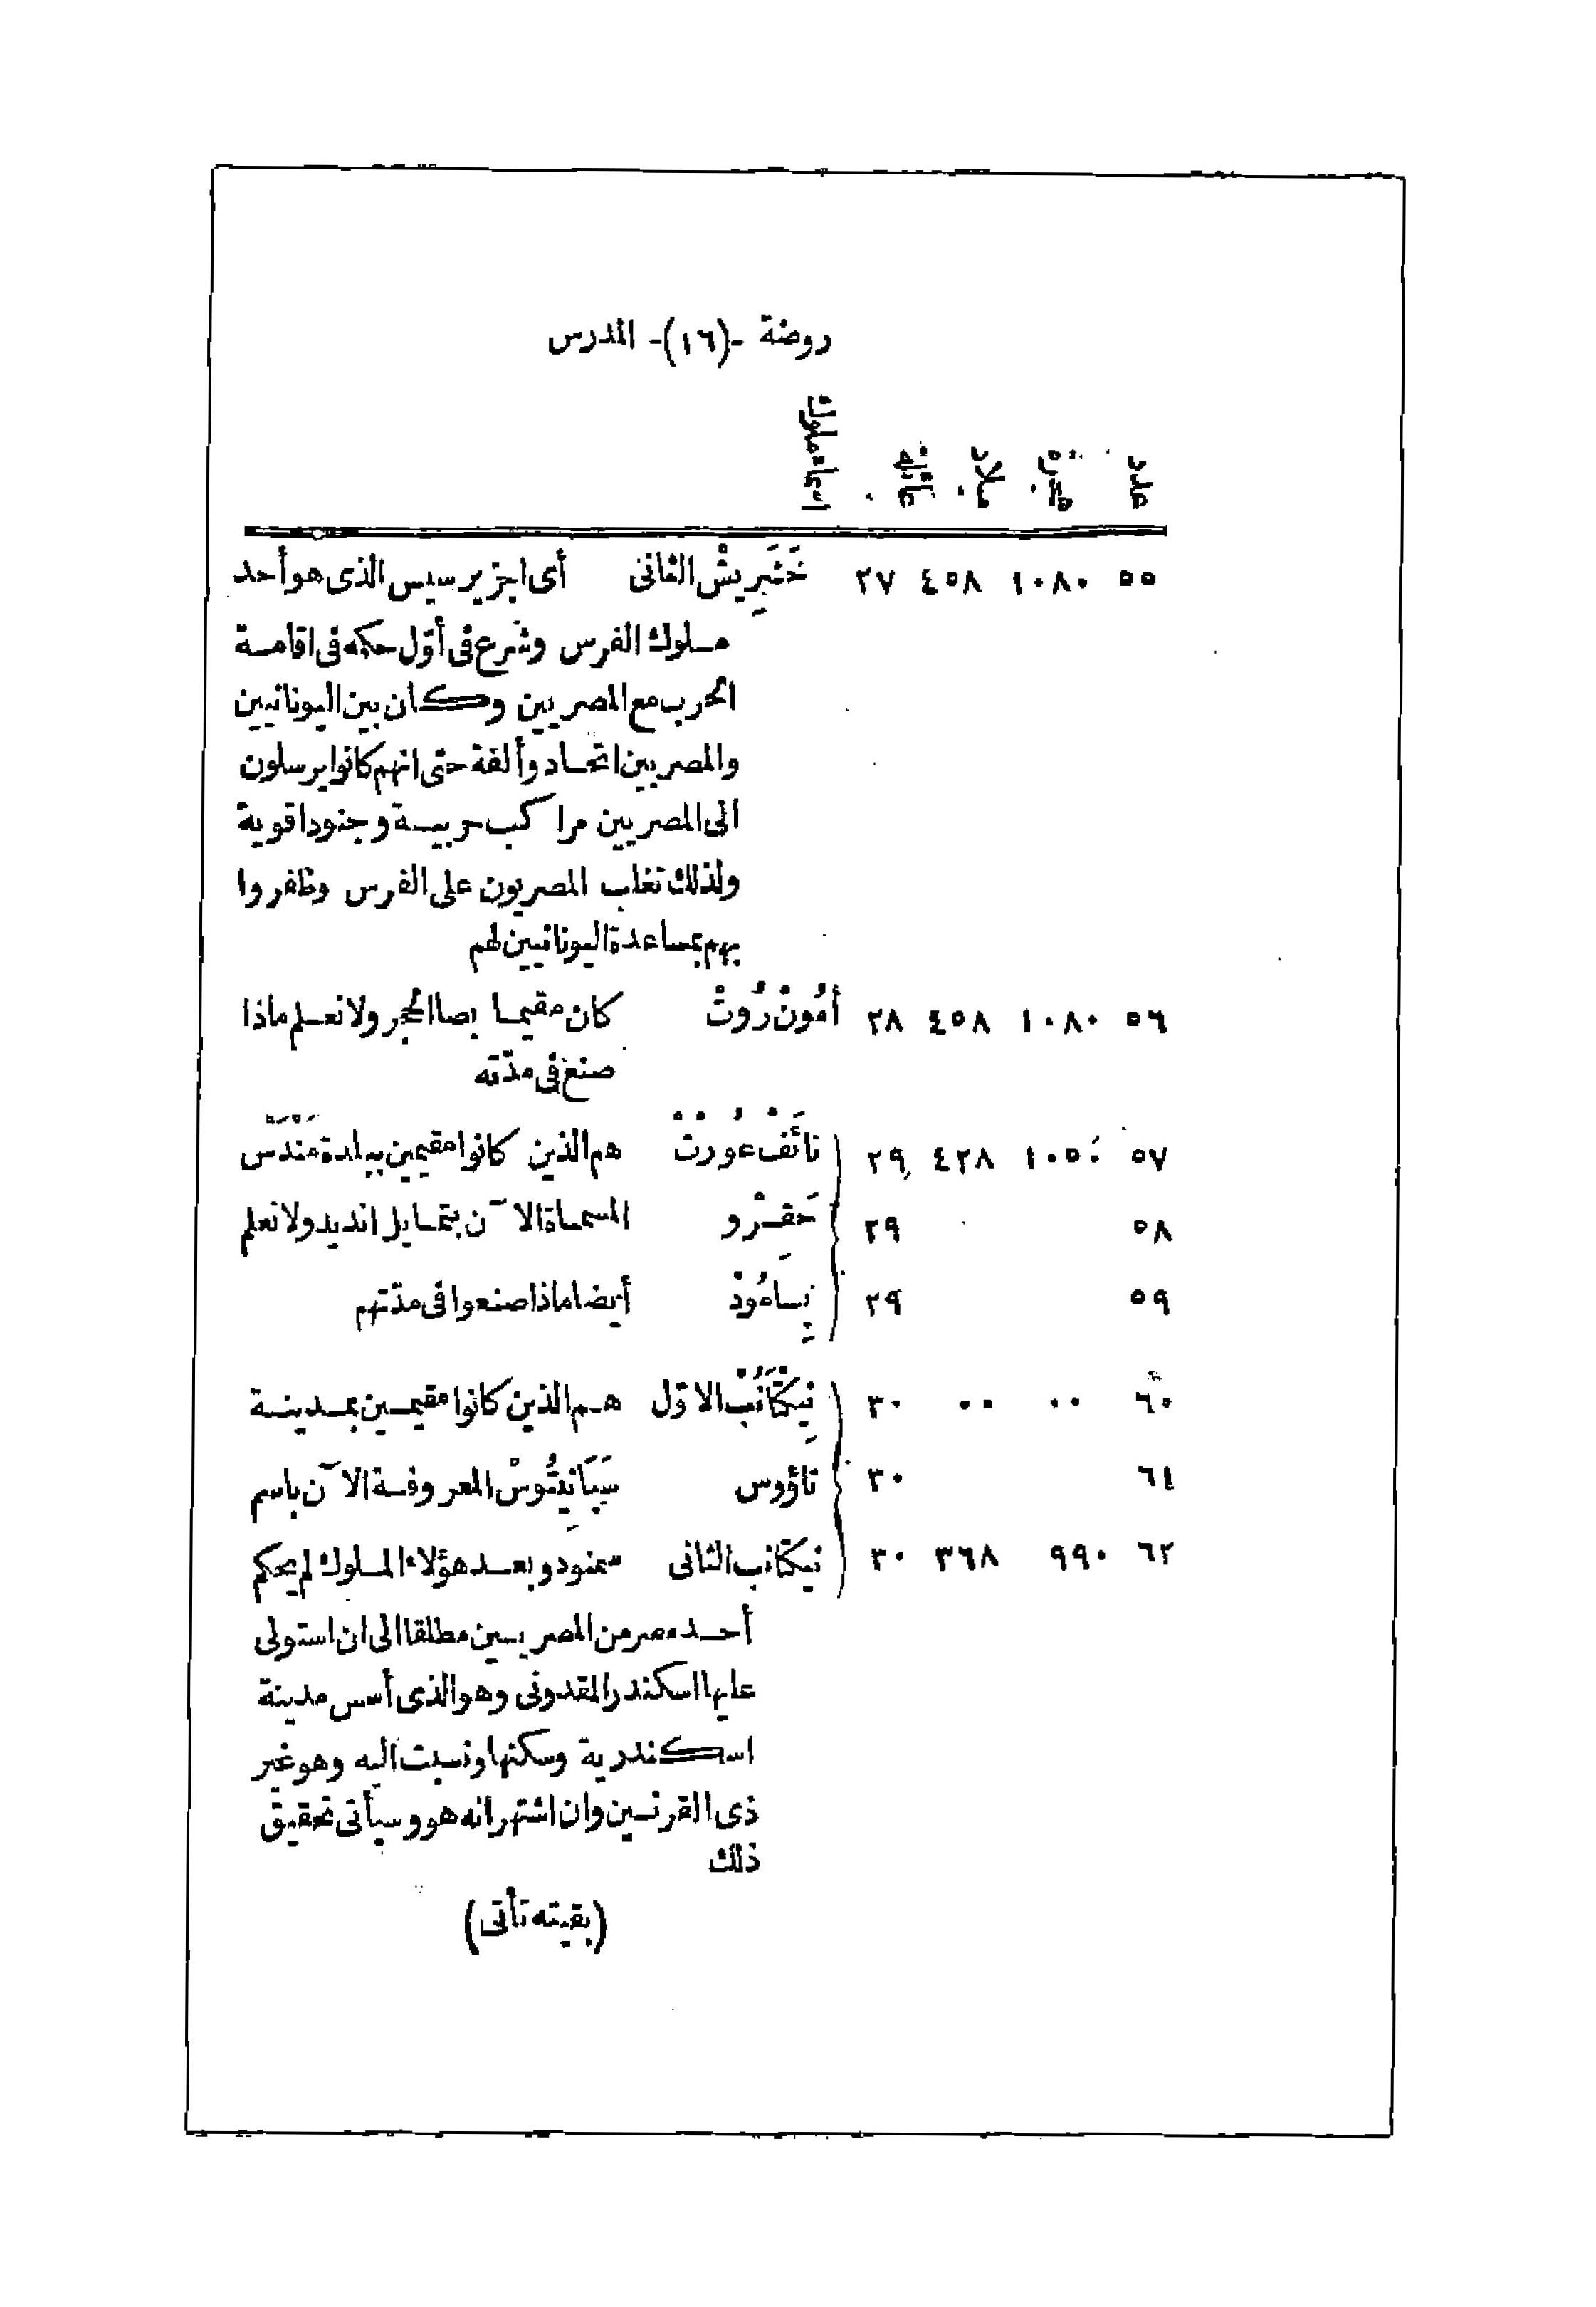 روضة -(١٦)- المدرس
عدد هجرة ميلاد عائلة اسماء ملوك
٥٥ ١٠٨٠ ٤٥٨ ٢٧ خَثَبِرِيشْ الثانى أى اجزيرسيس الذى هو أحد
ملوك الفرس وشرع فى أوّل حكمه فى اقامة
الحرب مع المصريين وكان بين اليونانيين
والمصريين اتحاد وألفة حتى انهم كانوا يرسلون
الى المصريين مراكب حربية وجنودا قوية
ولذلك تغلب المصريون على الفرس وظفروا
بهم بمساعدة اليونانيين لهم
٥٦ ١٠٨٠ ٤٥٨ ٢٨ أمُونْ رُوتْ كان مقيما بصا الحجر ولا نعلم ماذا
صنع فى مدّته
٥٧ ١٠٥٠ ٤٢٨ ٢٩ نائَفْ عُورْتْ هم الذين كانوا مقيمين ببلدة مَنْدَسْ
٥٨ ٢٩ حَقِرْو المسماة الآن بتمايل انديد ولا نعلم
٥٩ ٢٩ بِسامُوذْ أيضا ماذا صنعوا فى مدّتهم
٦٠ ٠٠ ٠٠ ٣٠ نِيكْتَانَبْ الاوّل هم الذين كانوا مقيمين بمدينة
٦١ ٣٠ تاؤوس سَبَانِيتُوسْ المعروفة الآن باسم
٦٢ ٩٩٠ ٣٦٨ ٣٠ نيكتانب الثانى سمنود وبعد هؤلاء الملوك لم يحكم
أحد مصر من المصريين مطلقا الى ان استولى
عليها اسكندر المقدونى وهو الذى أسس مدينة
اسكندرية وسكنها ونسبت اليه وهو غير
ذى القرنين وان اشتهر انه هو وسيأتى تحقيق
ذلك
(بقيته تأتى)